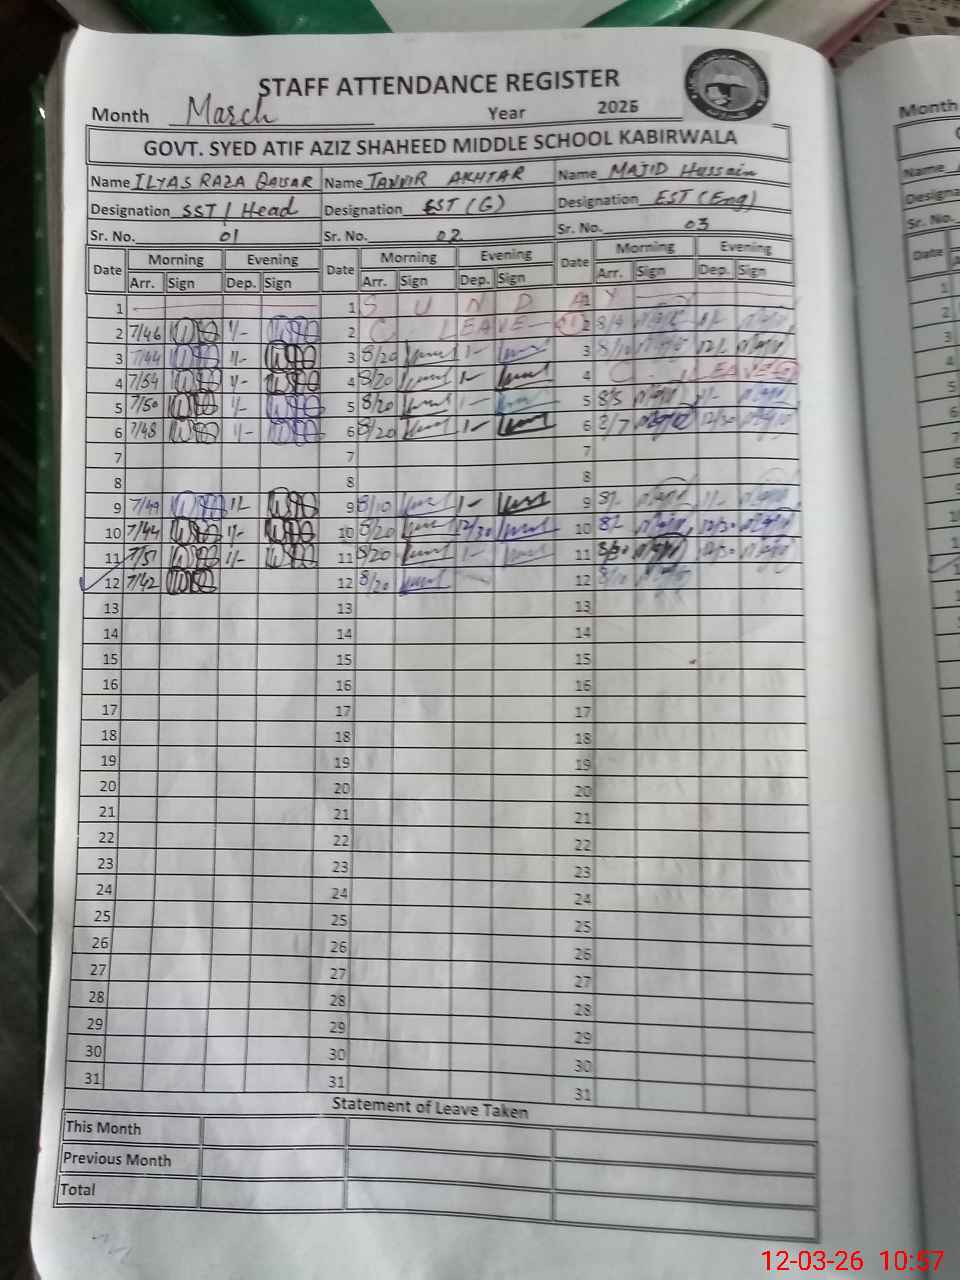 STAFF ATTENDANCE REGISTER
Month March Year 2026
GOVT. SYED ATIF AZIZ SHAHEED MIDDLE SCHOOL KABIRWALA
Name ILYAS RAZA QAISAR Name TANVIR AKHTAR Name MAJID Hussain
Designation SST / Head Designation EST (G) Designation EST (Eng)
Sr. No. 01 Sr. No. 02 Sr. No. 03
Date Morning Evening Date Morning Evening Date Morning Evening
Arr. Sign Dep. Sign Arr. Sign Dep. Sign Arr. Sign Dep. Sign
1 1 S U N D A 1 Y
2 7/46 1/- 2 C. LEAVE 2 8/
3 7/44 1/- 3 8/20 1- 3 8/10 12/
4 7/54 1/- 4 8/20 1- 4 C. LEAVE
5 7/50 1/- 5 8/20 1- 5 8/5 1/-
6 7/48 1/- 6 8/20 1- 6 12/30
7 7 7
8 8 8
9 7/49 1/- 9 8/10 1- 9 8/- 1/-
10 7/44 1/- 10 8/20 12/30 10 8/- 12/30
11 7/51 1/- 11 8/20 1- 11 8/30 12/30
12 7/42 12 8/20 12 8/10
13 13 13
14 14 14
15 15 15
16 16 16
17 17 17
18 18 18
19 19 19
20 20 20
21 21 21
22 22 22
23 23 23
24 24 24
25 25 25
26 26 26
27 27 27
28 28 28
29 29 29
30 30 30
31 31 31
Statement of Leave Taken
This Month
Previous Month
Total
Month
Name
Designa
Sr. No.
Date
12-03-26 10:57